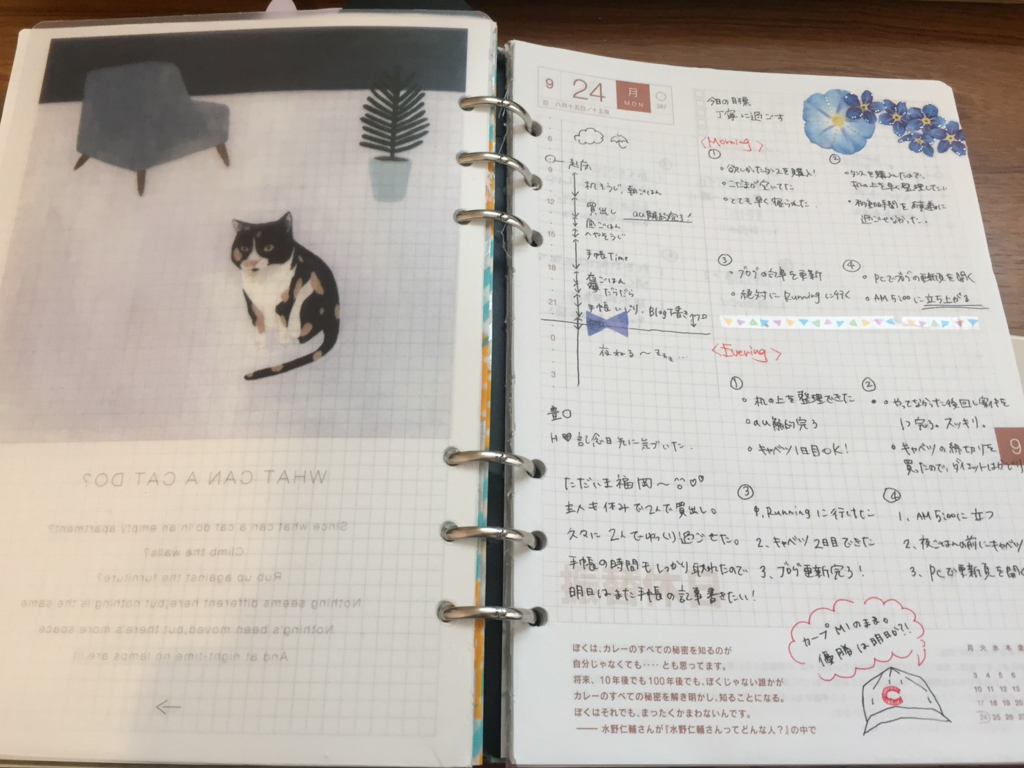 WHAT CAN A CAT DO?
Since what can a cat do in an empty apartment?
Climb the walls?
Rub up against the furniture?
Nothing seems different here, but nothing is the same
Nothing's been moved, but there's more space
And at night-time no lamps are lit
9
24
月
MON
旧・八月十五日/十五夜
267
今日の目標
丁寧に過ごす
<Morning>
①
・欲しかったタンスを購入!
・とても早く帰られた
②
・タンスを購入したので、
机の上を早く整理したい
・移動時間を有意義に
過ごせなかった!
③
・ブログの記事を更新
・絶対にRunningに行く
④
・PCでブログの更新頁を開く
・AM5:00に立ち上がる
6
起床
9
机そうじ、朝ごはん
12
買出し au解約完了!
昼ごはん
15
へやそうじ
手帳Time
18
夜ごはん
だらだら
21
手帳いじり、Blog下書き
0
夜ねる〜
3
<Evening>
①
・机の上を整理できた
・au解約完了
・キャベツ1日目OK!
②
・やってなかった後回し案件を
1つ完了。スッキリ。
・キャベツの千切りを
買ったので、ダイエットはかどり
③
1、Runningに行けた
2、キャベツ2日目できた
3、ブログ更新完了!
④
1、AM5:00に立つ
2、夜ごはんの前にキャベツ
3、PCで更新頁を開く
9
H♥記念日先に気づいた。
ただいま福岡〜
主人も休みで2人で買出し。
久々に2人でゆっくり過ごせた。
手帳の時間もしっかり取れたので
明日はまた手帳の記事書きたい!
カープM1のまま。
優勝は明日か?!
C
ぼくは、カレーのすべての秘密を知るのが
自分じゃなくても‥‥とも思ってます。
将来、10年後でも100年後でも、ぼくじゃない誰かが
カレーのすべての秘密を解き明かし、知ることになる。
ぼくはそれでも、まったくかまわないんです。
――水野仁輔さんが『水野仁輔さんってどんな人?』の中で
月 火 水 木 金
3 4 5 6
10 11 12 13
17 18 19 20
24 25 26 27